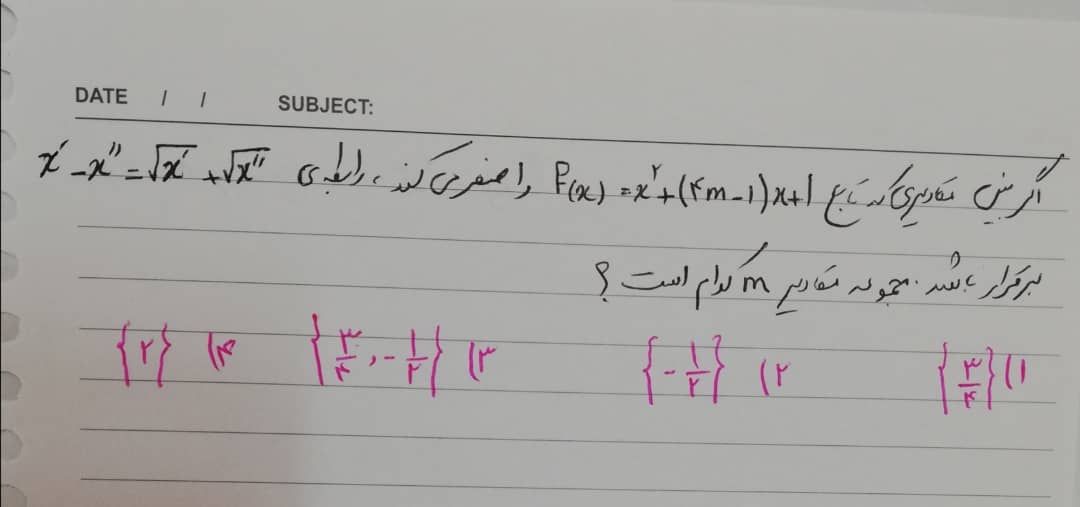 DATE / / SUBJECT:
اگر بین مقادیری که تابع P(x) = x² + (۴m-۱)x+۱ را صفر می کند، رابطه ی x′ - x″ = √x′ + √x″
برقرار باشد. مجموعه مقادیر m کدام است؟
۱) {۳/۴} ۲) {-۱/۲} ۳) {۳/۴ , -۱/۲} ۴) {۲}